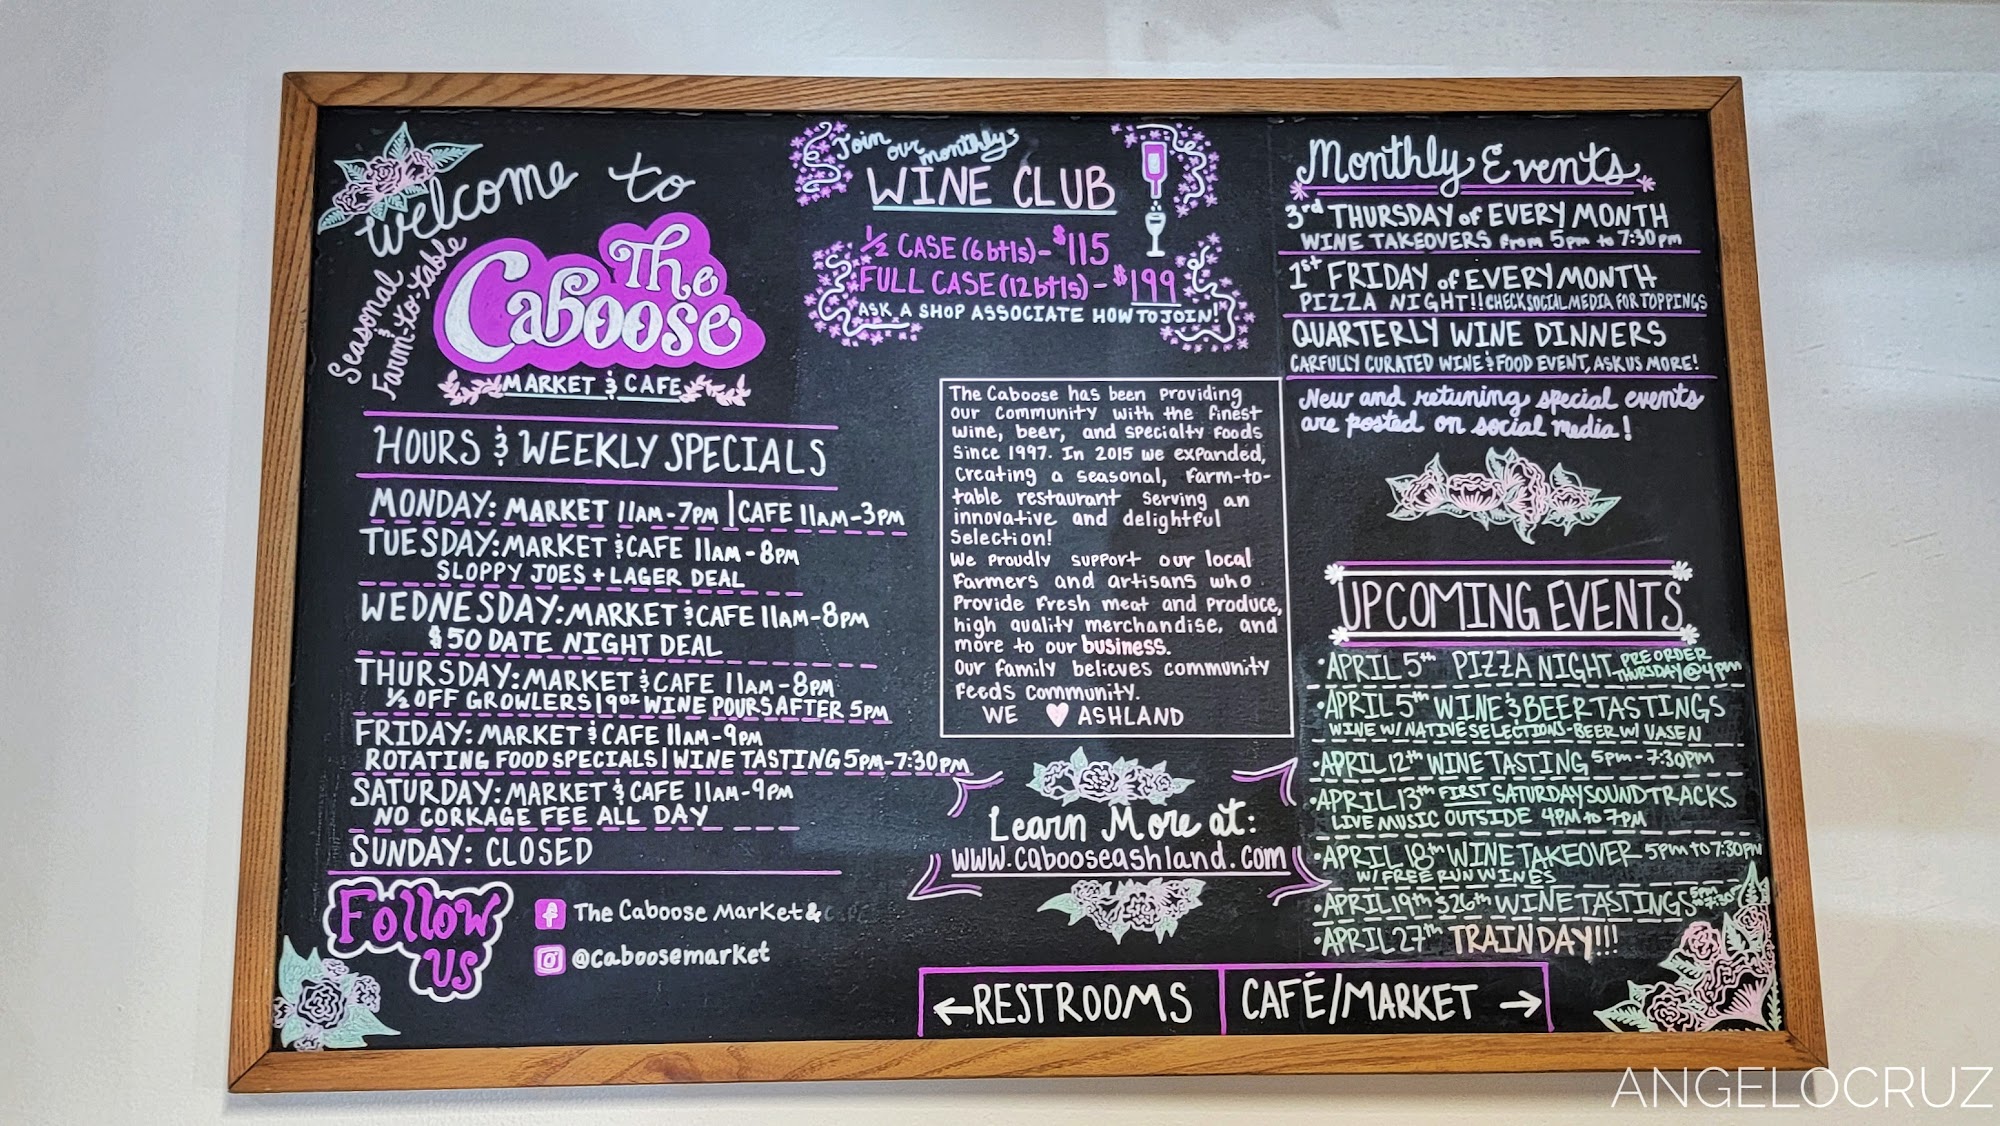 Welcome to
Seasonal &
Farm-to-table
The
Caboose
MARKET & CAFE
HOURS & WEEKLY SPECIALS
MONDAY: MARKET 11AM-7PM | CAFE 11AM-3PM
TUESDAY: MARKET & CAFE 11AM-8PM
SLOPPY JOES + LAGER DEAL
WEDNESDAY: MARKET & CAFE 11AM-8PM
$50 DATE NIGHT DEAL
THURSDAY: MARKET & CAFE 11AM-8PM
½ OFF GROWLERS | 9oz WINE POURS AFTER 5PM
FRIDAY: MARKET & CAFE 11AM-9PM
ROTATING FOOD SPECIALS | WINE TASTING 5PM-7:30PM
SATURDAY: MARKET & CAFE 11AM-9PM
NO CORKAGE FEE ALL DAY
SUNDAY: CLOSED
Follow
US
The Caboose Market & CAFE
@caboosemarket
Join our monthly
WINE CLUB
½ CASE (6 btls) - $115
FULL CASE (12 btls) - $199
ASK A SHOP ASSOCIATE HOW TO JOIN!
The Caboose has been providing
our community with the finest
wine, beer, and specialty foods
since 1997. In 2015 we expanded,
creating a seasonal, farm-to-
table restaurant serving an
innovative and delightful
selection!
We proudly support our local
farmers and artisans who
provide fresh meat and produce,
high quality merchandise, and
more to our business.
Our family believes community
feeds community.
WE ♥ ASHLAND
Learn More at:
www.cabooseashland.com
Monthly Events
3rd THURSDAY of EVERY MONTH
WINE TAKEOVERS from 5pm to 7:30pm
1st FRIDAY of EVERY MONTH
PIZZA NIGHT!! CHECK SOCIAL MEDIA FOR TOPPINGS
QUARTERLY WINE DINNERS
CARFULLY CURATED WINE & FOOD EVENT, ASK US MORE!
New and retuning special events
are posted on social media!
UPCOMING EVENTS
•APRIL 5th PIZZA NIGHT PRE ORDER THURSDAY @ 4pm
•APRIL 5th WINE & BEER TASTINGS
WINE W/ NATIVE SELECTIONS - BEER W/ VASEN
•APRIL 12th WINE TASTING 5pm - 7:30pm
•APRIL 13th FIRST SATURDAY SOUNDTRACKS
LIVE MUSIC OUTSIDE 4PM to 7PM
•APRIL 18th WINE TAKEOVER 5pm to 7:30pm
W/ FREE RUN WINES
•APRIL 19th & 26th WINE TASTINGS 5pm to 7:30pm
•APRIL 27th TRAIN DAY!!!
←RESTROOMS
CAFÉ/MARKET →
ANGELOCRUZ